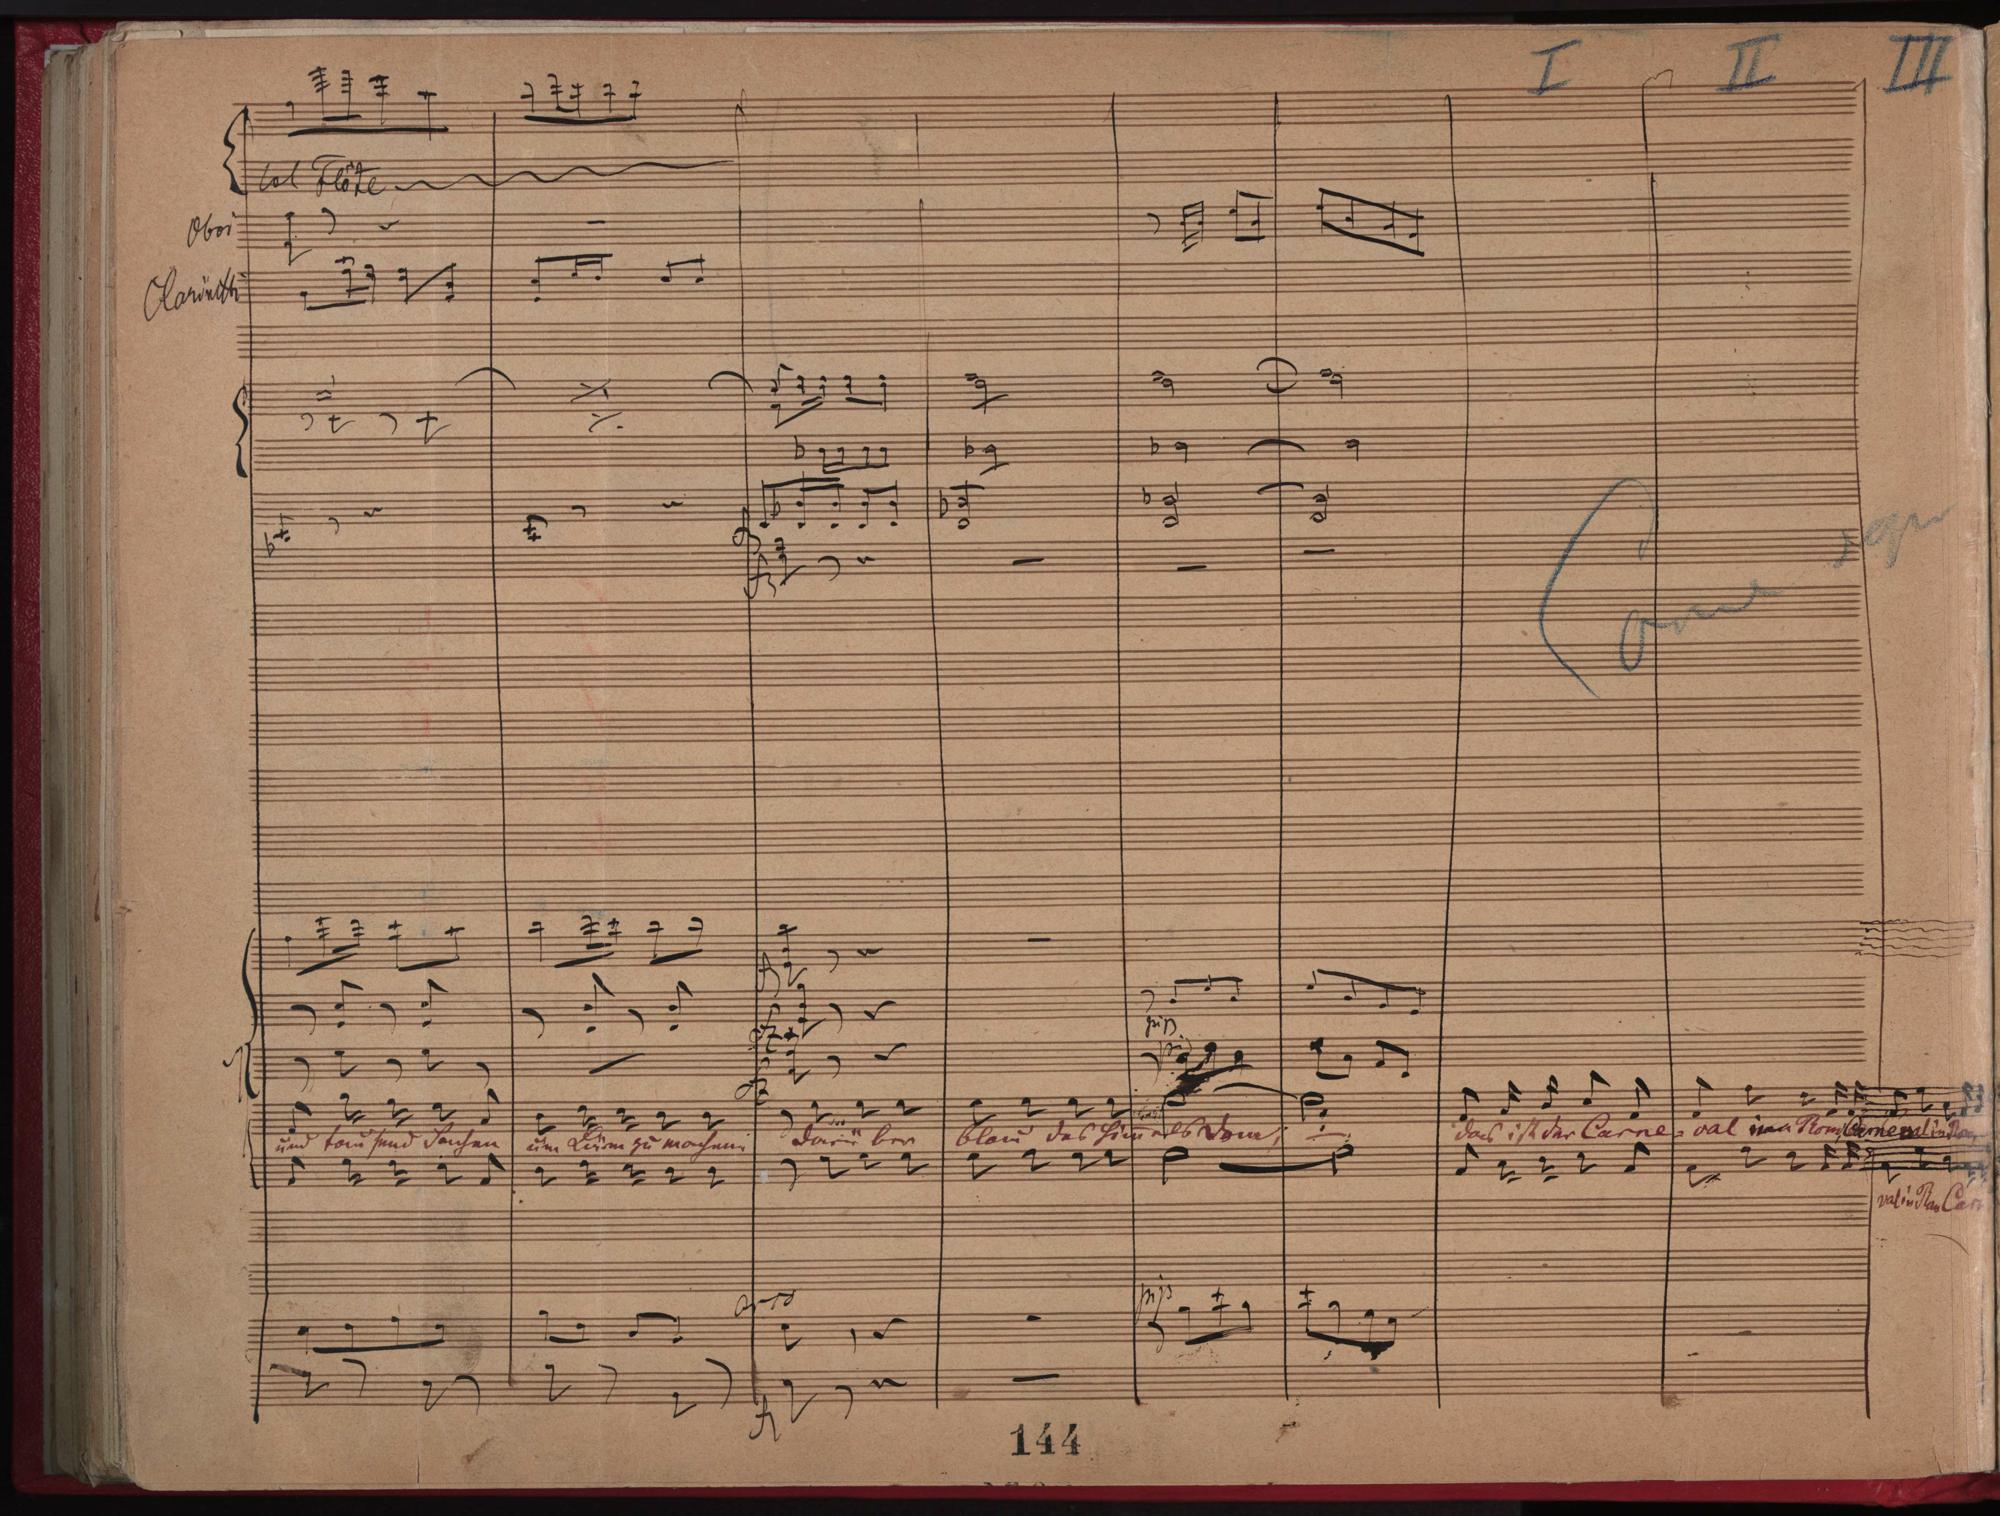 I II III
col Flöte
Oboi
Clarinetti
fz
fz
fz
pizz
und tausend Sachen um Lärm zu machen; Darüber blau des Himmels Dom; das ist der Carne-val in Rom, Carneval in Rom,
val in Rom Car
arco
pizz
fz
144